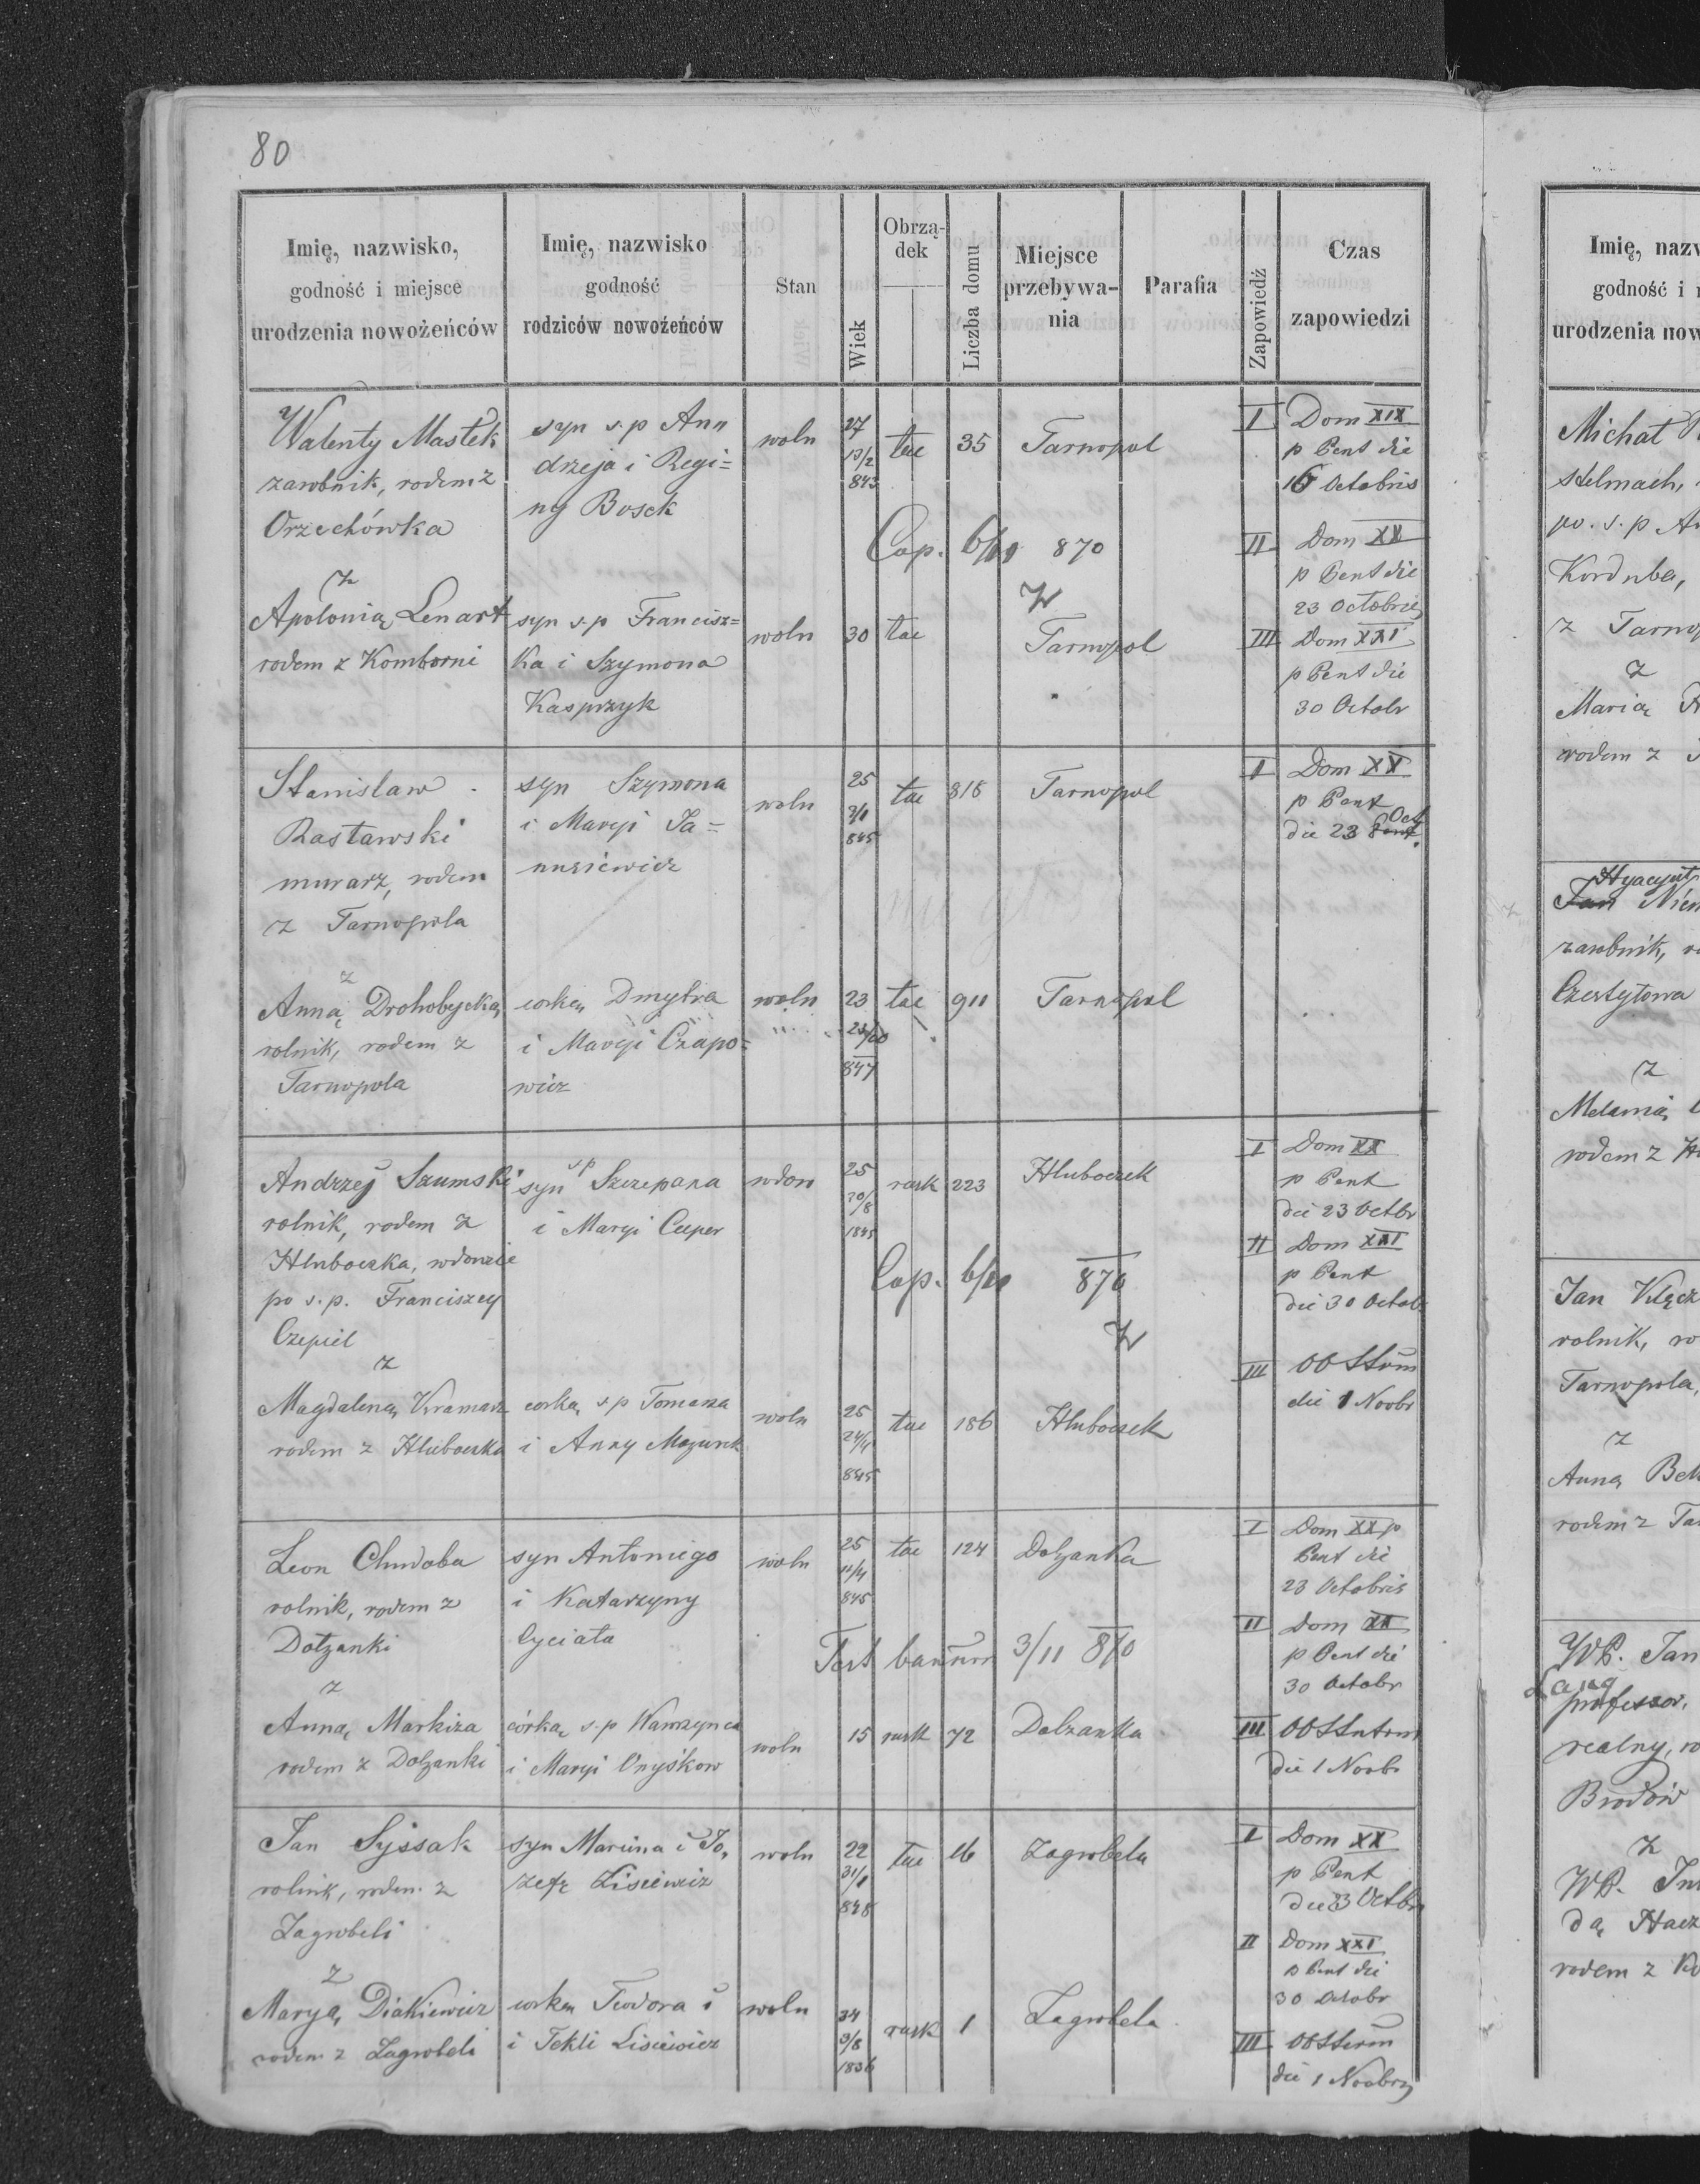 80
Imię, nazwisko, godność i miejsce urodzenia nowożeńców
Imię, nazwisko godność rodziców nowożeńców
Stan
Wiek
Obrządek
Liczba domu
Miejsce przebywania
Parafia
Zapowiedź
Czas zapowiedzi
Walenty Mastek
zarobnik, rodem z
Orzechówka
z
Apolonią Lenart
rodem z Komborni
syn s.p An
drzeja i Regi=
ny Bosek
syn s.p Francisz=
ka i Szymona
Kasprzyk
woln
woln
27
13/2
843
30
tac
tac
35
Tarnopol
Cap. 6/11 870
Tarnopol
I Dom XIX
p Pent die
16 Octobris
II Dom XX
p Pent die
23 Octobris
III Dom XXI
p Pent die
30 Octobr
Stanislaw
Rastawski
murarz, rodem
z Tarnopola
z
Anną Drohobycką
rolnik, rodem z
Tarnopola
syn Szymona
i Maryi Ja=
nusiewicz
corką Dmytra
i Maryi Czapo=
wicz
woln
woln
25
845
23
847
tac
tac
911
Tarnopol
Tarnopol
I Dom XX
p Pent
die 23 Oct
Andrzej Szumski
rolnik, rodem z
Hluboczka, wdowiec
po s.p. Franciszcy
Czepiel
z
Magdaleną Kramarz
rodem z Hluboczka
syn sp Szczepana
i Maryi Ceeper
corką s.p Tomasza
i Anny Mazurek
wdow
woln
25
1845
25
24/4
845
rusk
tac
223
186
Hluboczek
Cap. 6/11 870
Hluboczek
I Dom XX
p Pent
die 23 Octbr
II Dom XXI
p Pent
die 30 Octob
III OO SSrum
die 1 Novbr
Leon Chudoba
rolnik, rodem z
Dołzanki
z
Anną Markiza
rodem z Dolzanki
syn Antoniego
i Katarzyny
Lyciata
córką s.p Wawrzynca
i Maryi Onyśkow
woln
woln
25
11/4
845
15
tac
rusk
124
72
Dolzanka
Test bannor 3/11 870
Dolzanka
I Dom XX p
Pent die
23 Octobris
II Dom XXI
p Pent die
30 Octobr
III OO SSntrum
die 1 Novbr
Jan Syssak
rolnik, rodem z
Zagrobeli
z
Maryą Diakiewicz
rodem z Zagrobeli
syn Marcina i Jo,
zefy Lisiewicz
corką Teodora i
i Tekli Lisiewicz
woln
woln
22
31/1
848
34
3/8
1836
tac
rusk
16
1
Zagrobela
Zagrobela
I Dom XX
p Pent
die 23 Octbr
II Dom XXI
p Pent die
30 Octobr
III OO SSrum
die 1 Novbris
Imię, nazw
godność i
urodzenia now
Michał
stelmach,
po. s.p
Korduba,
z Tarnop
z
Marią
rodem z
Hyacynt
Jan Niem
zarobnik,
Czestylowa
z
Melanią
rodem z
Jan Kłęcz
rolnik, ro
Tarnopola,
z
Anną
rodem z Ta
WP. Jan
Lang
professor,
realny, ro
Brodów
z
WP.
dą Hacz
rodem z